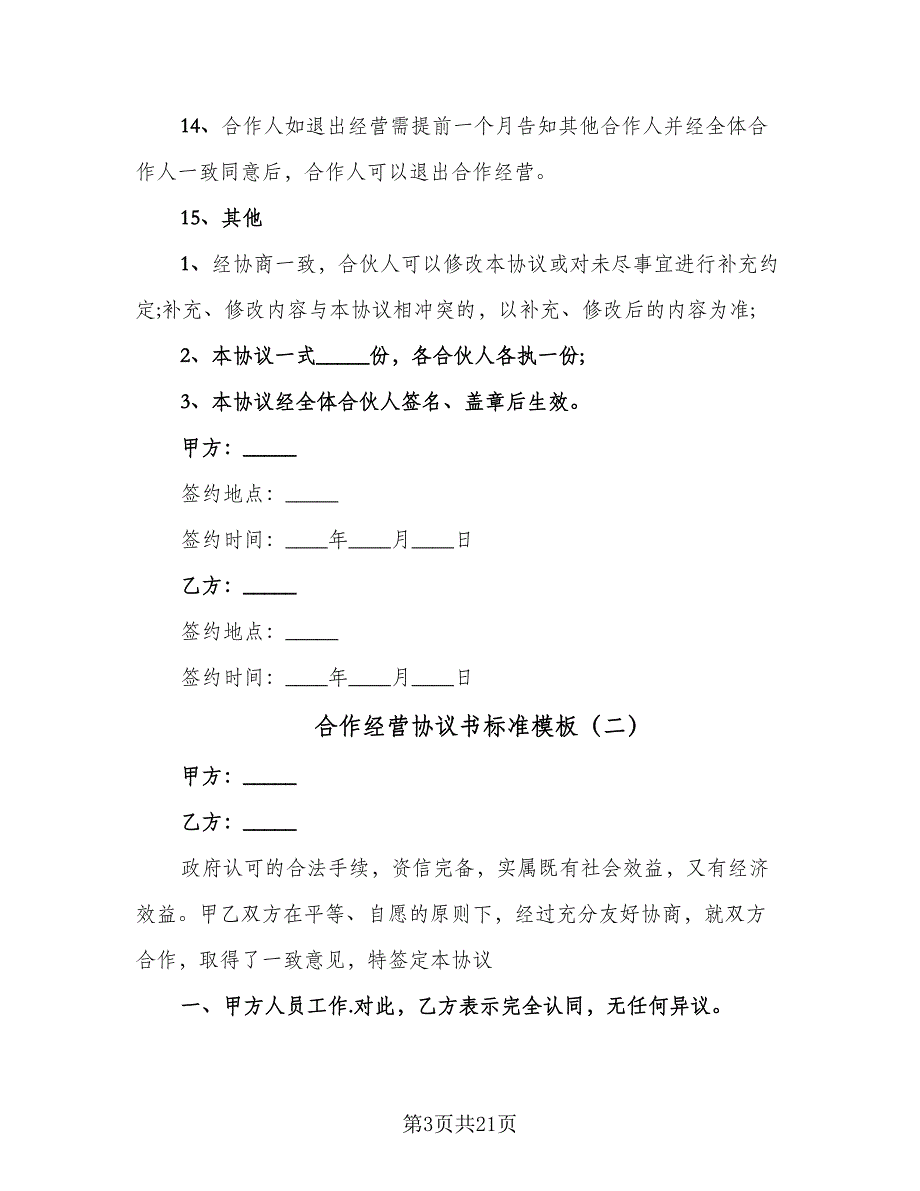 14、合作人如退出经营需提前一个月告知其他合作人并经全体合
作人一致同意后，合作人可以退出合作经营。
15、其他
1、经协商一致，合伙人可以修改本协议或对未尽事宜进行补充约
定;补充、修改内容与本协议相冲突的，以补充、修改后的内容为准;
2、本协议一式_____份，各合伙人各执一份;
3、本协议经全体合伙人签名、盖章后生效。
甲方：_____
签约地点：_____
签约时间：____年____月____日
乙方：_____
签约地点：_____
签约时间：____年____月____日
合作经营协议书标准模板（二）
甲方：_____
乙方：_____
政府认可的合法手续，资信完备，实属既有社会效益，又有经济
效益。甲乙双方在平等、自愿的原则下，经过充分友好协商，就双方
合作，取得了一致意见，特签定本协议
一、甲方人员工作.对此，乙方表示完全认同，无任何异议。
第3页共21页